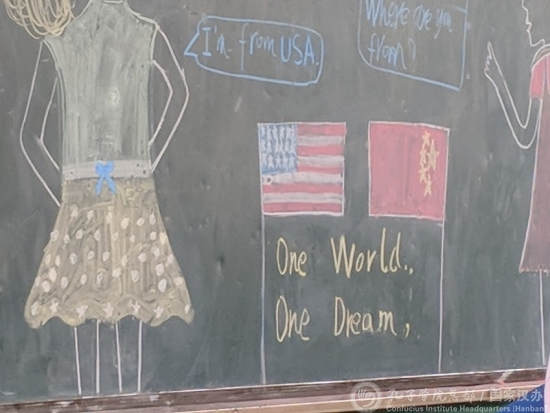 I'm from USA.
Where are you
from?
One World.,
One Dream,
Confucius Institute Headquarters (Hanban